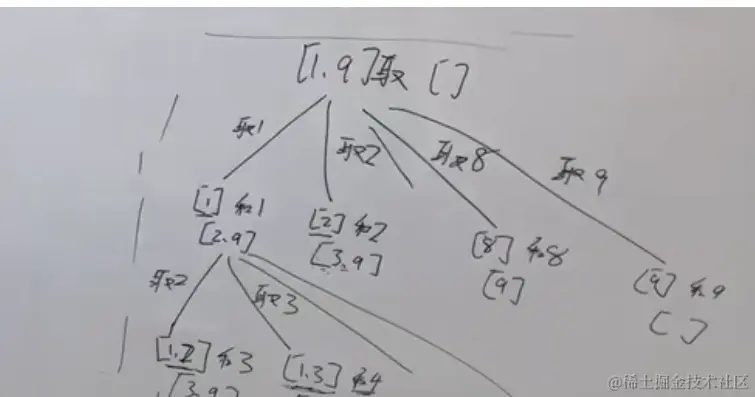 [1.9]取 []
取1
取2
取8
取9
[1] 和1
[2.9]
[2] 和2
[3.9]
[8] 和8
[9]
[9] 和9
[ ]
取2
取3
[1.2] 和3
[3.9]
[1.3] 和4
@稀土掘金技术社区